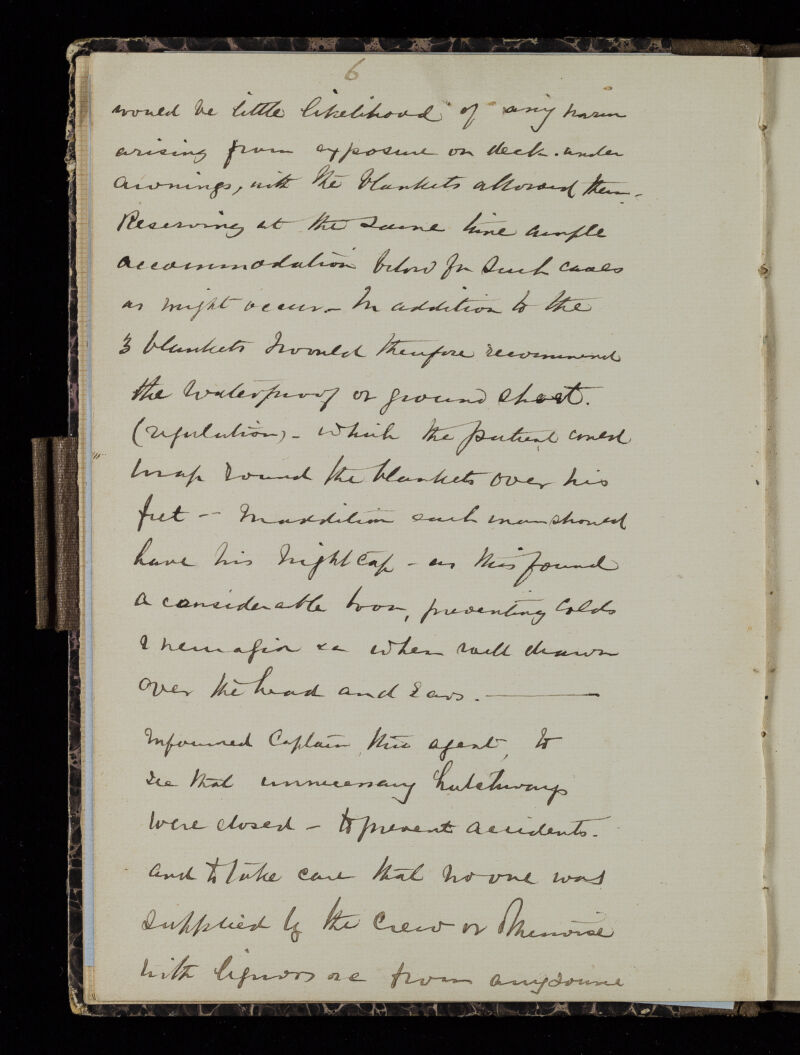 6
would be little likelihood of any harm
arising from exposure on deck. under
awnings, with the blankets allowed them -
Reserving at the same time ample
accommodation below for such cases
as might occur - In addition to the
3 blankets I would therefore recommend
the waterproof or ground sheet.
(regulation) - which the patient could
wrap round the blankets over his
feet - In addition each man should
have his Night Cap - as this found
a considerable boon, preventing Colds
& neuralgia &c when well drawn
over the head and Ears. ———
Informed Captain thro agent, to
see that unnecessary hatchways
were closed - to prevent accidents.
and to take care that no one was
supplied by the Crew or Otherwise
with liquors &c from any source